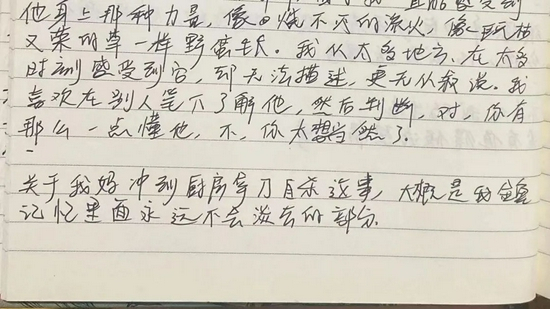 他身上那种力量，像口烧不灭的流火，像既枯
又荣的草一样野蛮生长。我从太多地方、在太多
时刻感受到它，却无法描述，更无从叙说。我
喜欢在别人笔下了解他，然后判断，对，你有
那么一点懂他，不，你太想当然了。
关于我妈冲到厨房拿刀自杀这事，大概是我
记忆里面永远不会淡去的部分.